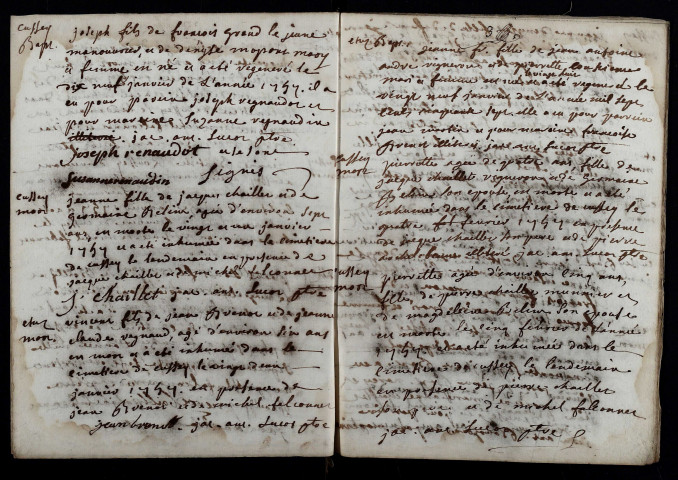 cussey
Bapt
joseph fils de francois grand le jeune
manouvrier et de denyse mopont mary
et femme en né et a eté regeneré le
dix neuf janvier de l'année 1757. il a
eu pour parein joseph regnaudot et
pour mareine suzanne regnaudin
jac. ant. sucor ptre
joseph renaudot
suzanne renaudin signés
cussey
mort
jeanne fille de jacque chaillet et de
germaine Belin, agée d'environ sept
ans, en morte le vingt et un janvier
1757 et a eté inhumée dans le cimetiere
de cussey le lendemain en presence de
jacque chaillet et de michel falconnet
j. chaillet jac. ant. sucor ptre
etuz
mort
vincent fils de jean Brenot et de jeanne
claude vignaud, agé d'environ six ans
en mort et a eté inhumé dans le
cimetiere de cussey le vingt deux
janvier 1757. en presence de
jean Brenot et de michel falconnet
jean brenot. jac. ant. sucor ptre
etuz Bapt
jeanne fr. fille de jean antoine
andre vigneron et de pierrette
mari et femme est née et a eté regeneré le
vingt neuf janvier mil sept
cent cinquante sept. elle a eu pour parein
jean et pour mareine francoise
Brenot illiterés jac. ant. sucor ptre
cussey
mort
pierrette agée de quatre ans fille de
jacque chaillet vigneron et de germaine
Belin son epouse en morte et a eté
inhumée dans le cimetiere de cussey le
quatre fevrier 1757 en presence
de jacque chaillet son pere et de pierre
jac. ant. sucor ptre
cussey
mort
pierrette agée d'environ cinq ans,
fille de pierre chaillet munier et
de magdeleine Belin son epouse
en morte le cinq fevrier de l'année
1757. et a eté inhumée dans le
cimetiere de cussey le lendemain
en presence de pierre chaillet
son pere et de michel falconnet
jac. ant. sucor ptre